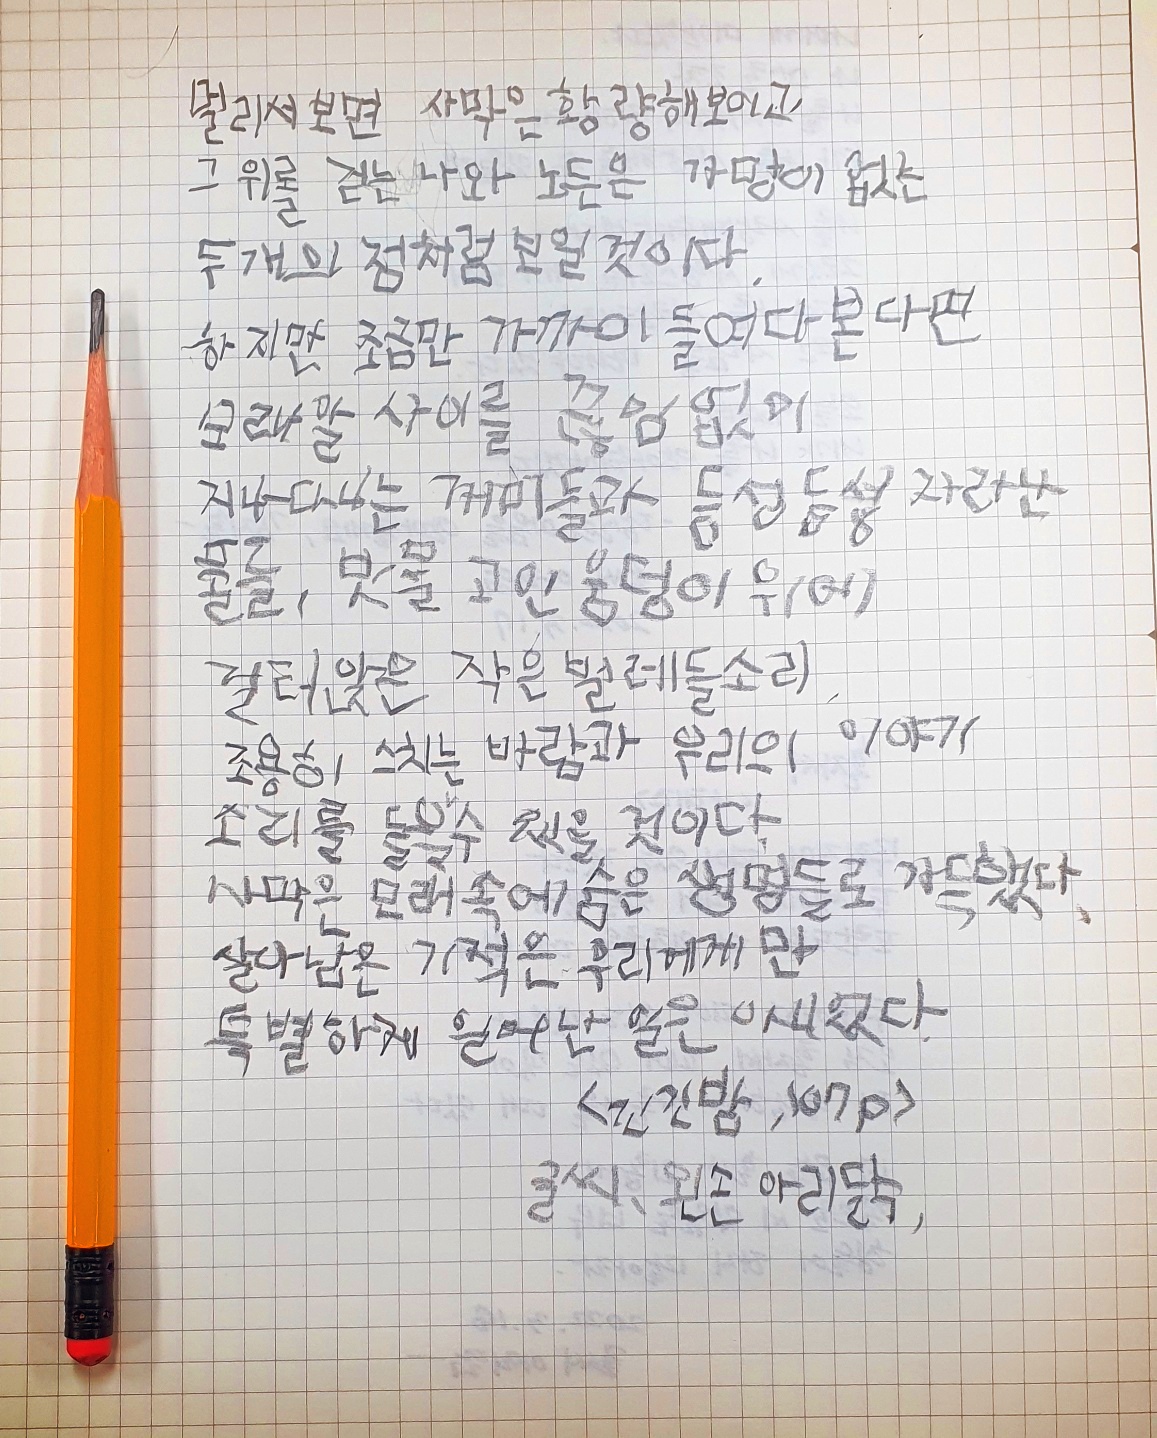 멀리서보면 사막은 황량해보이고
그 위를 걷는 나와 노든은 가망이 없는
두개의 점처럼 보일것이다.
하지만 조금만 가까이 들여다본다면
모래알 사이를 끊임없이
지나다니는 개미들과 듬성듬성 자라난
풀들, 빗물 고인 웅덩이 위에
걸터앉은 작은벌레들소리,
조용히 스치는 바람과 우리의 이야기
소리를 들을수 있을 것이다.
사막은 모래속에 숨은 생명들로 가득했다.
살아남은 기적은 우리에게만
특별하게 일어난 일은 아니었다.
<긴긴밤, 107p>
글씨, 왼손 아리닭,